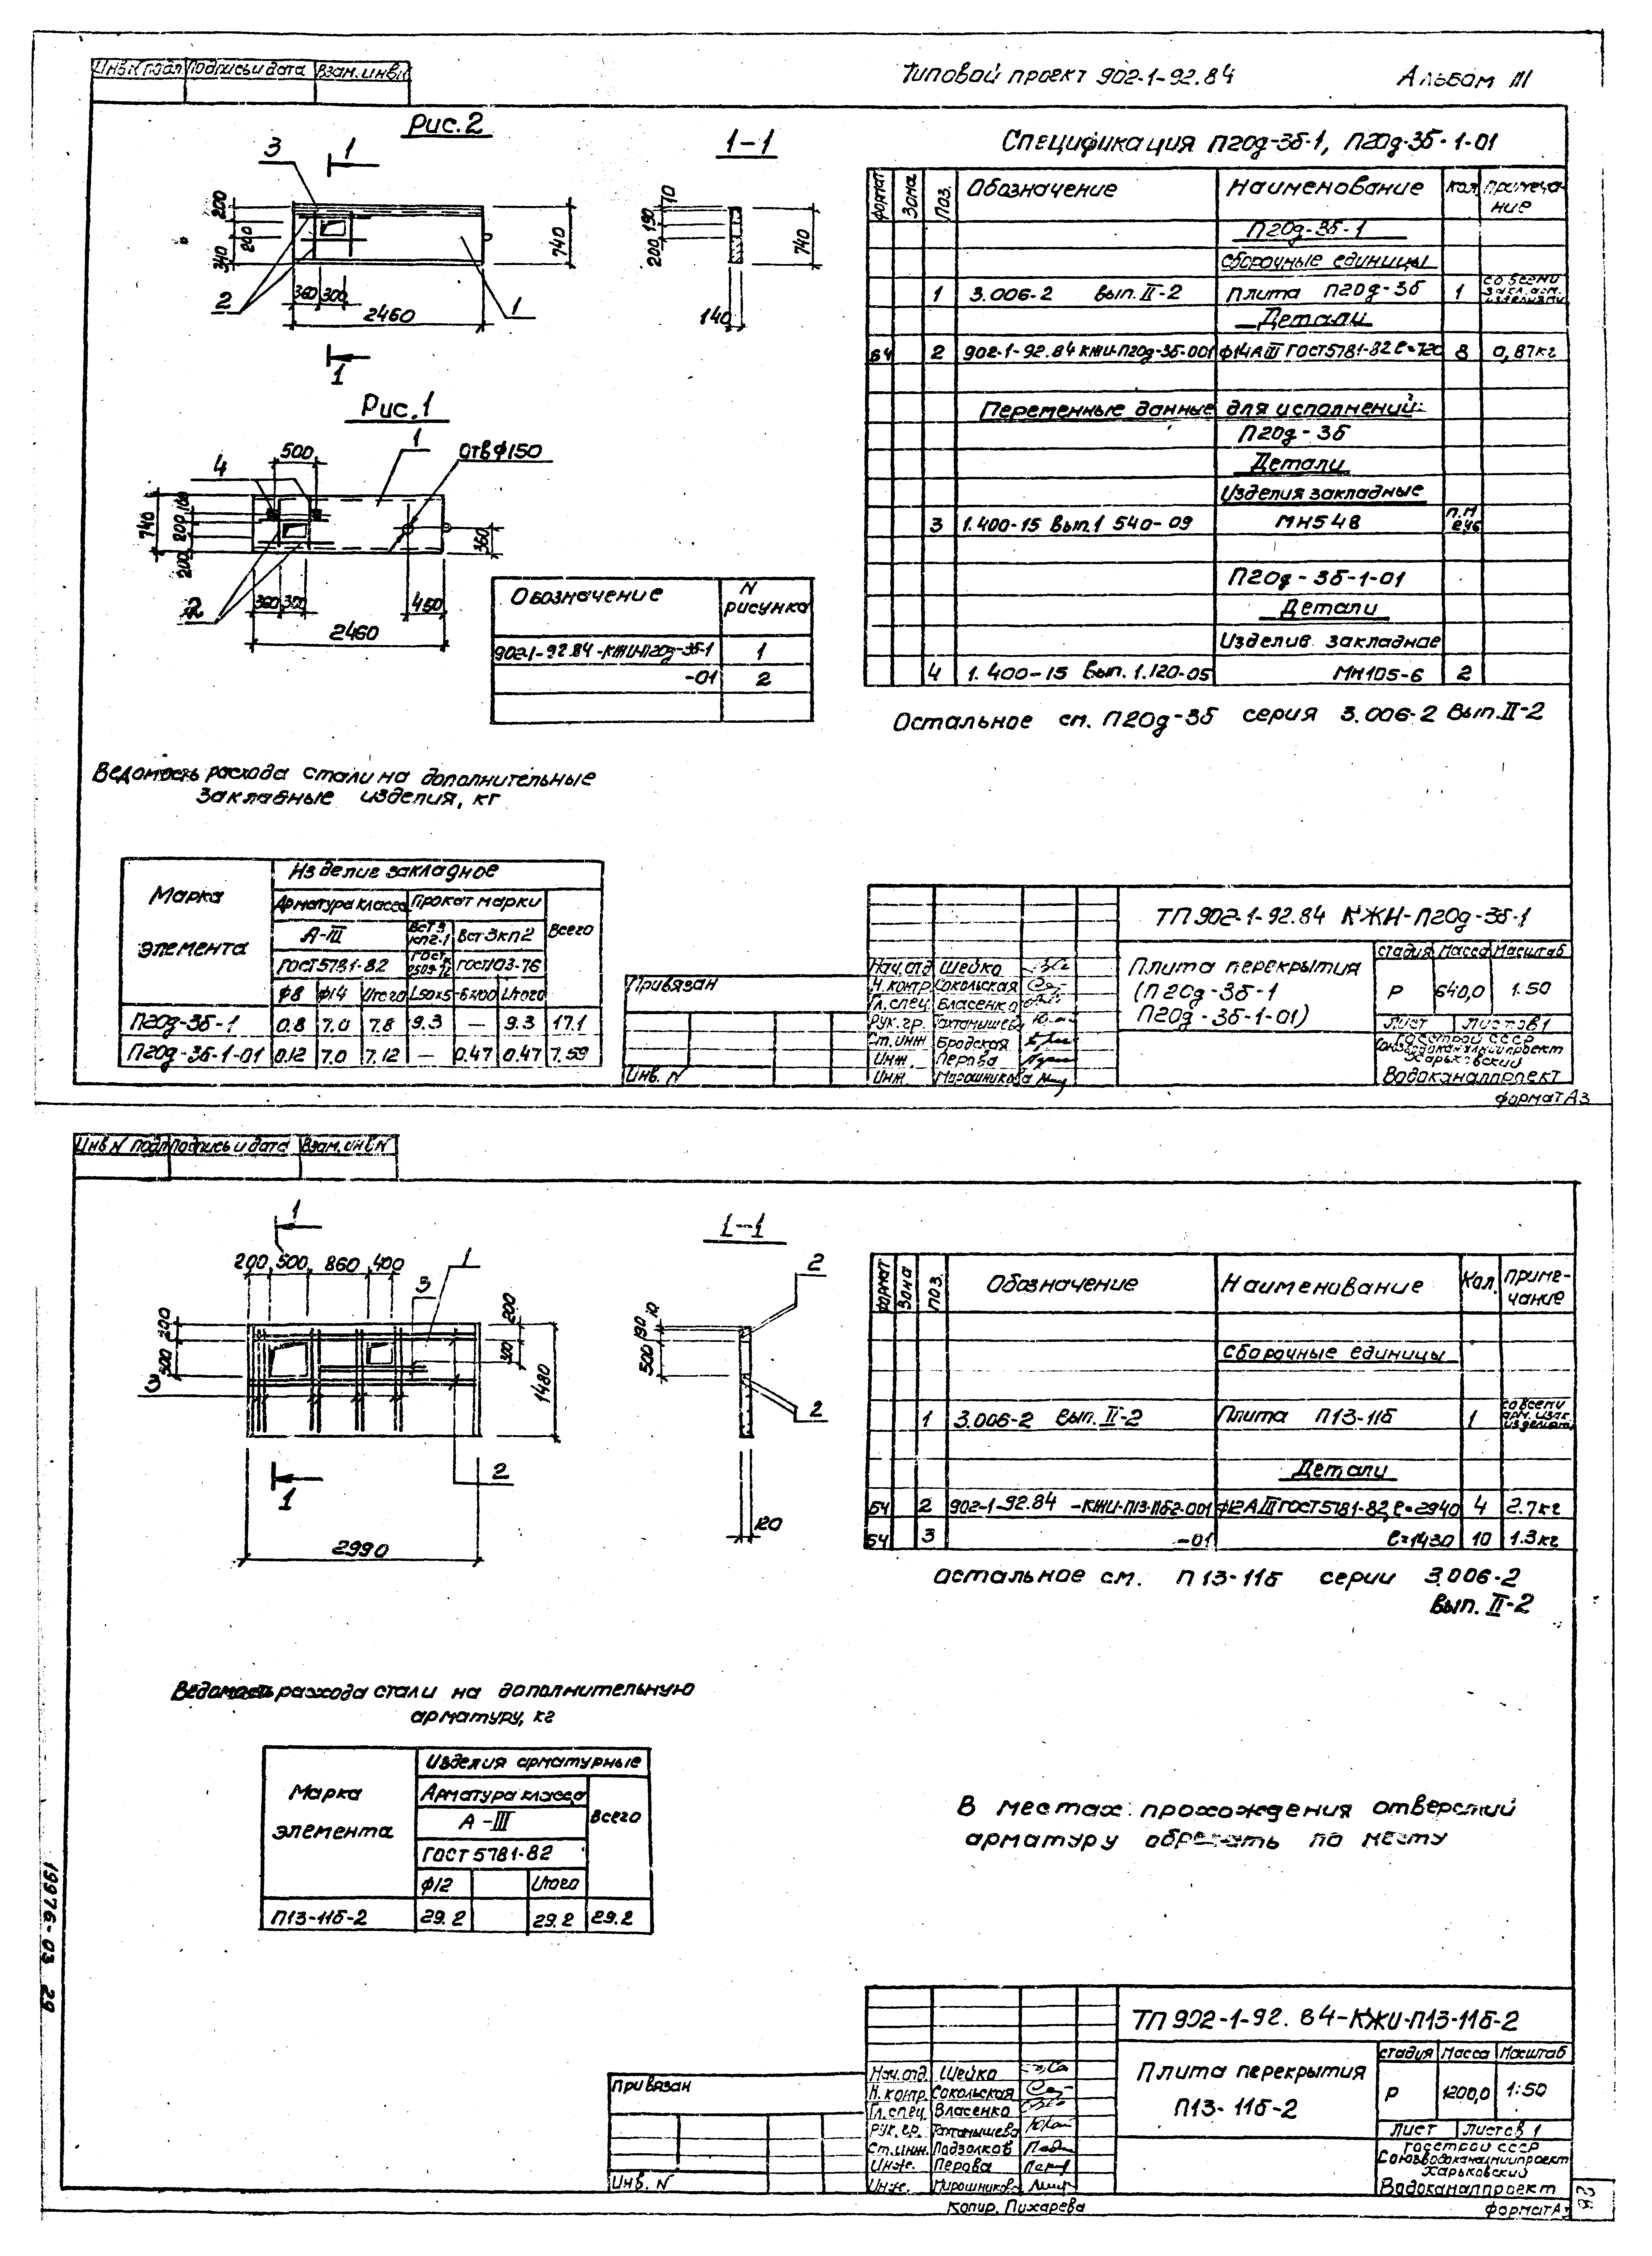 Инв.N подл Подпись и дата Взам.инв.N
Типовой проект 902-1-92.84 Альбом III
Рис.2
1-1
3
1
200
200
340
360 300
2460
740
2
1
1
10
190
200
740
140
Рис.1
4
500
1
Отв.ф150
740
200
200
360 300
450
360
2
2460
Обозначение N рисунка
902-1-92.84-КЖИ-П20д-3б-1 1
-01 2
Спецификация П20д-3б-1, П20д-3б-1-01
Формат Зона Поз. Обозначение Наименование Кол. Примечание
П20д-3б-1
Сборочные единицы
1 3.006-2 вып. II-2 Плита П20д-3б 1 со всеми
Детали
БЧ 2 902-1-92.84 КЖИ-П20д-3б-001 ф14АIII ГОСТ5781-82 ℓ=720 8 0,87кг
Переменные данные для исполнений:
П20д-3б
Детали
Изделия закладные
3 1.400-15 Вып.1 540-09 МН548 п.м
П20д-3б-1-01
Детали
Изделие закладное
4 1.400-15 Вып. 1.120-05 МН105-6 2
Остальное см. П20д-3б серия 3.006-2 Вып.II-2
Ведомость расхода стали на дополнительные
закладные изделия, кг
Марка элемента Изделие закладное
Арматура класса Прокат марки Всего
А-III ВСт3кп2-1 Вст3кп2
ГОСТ5781-82 ГОСТ103-76
ф8 ф14 Итого L50х5 -6х100 Итого
П20д-3б-1 0.8 7.0 7.8 9.3 — 9.3 17.1
П20д-3б-1-01 0.12 7.0 7.12 — 0.47 0.47 7.59
Привязан
Инв. N
Нач.отд Шейко
Н.контр. Сокольская
Гл.спец. Власенко
Рук.гр. Тахтамышева
Ст.инж Бродская
Инж. Перова
Инж Мирошникова
ТП 902-1-92.84 КЖИ-П20д-3б-1
Плита перекрытия
(П20д-3б-1
П20д-3б-1-01)
Стадия Масса Масштаб
Р 640,0 1:50
Лист Листов 1
Госстрой СССР
Союзводоканалниипроект
Харьковский
Водоканалпроект
Формат А3
Инв N подл Подпись и дата Взам.инв N
1
200 500 860 400
1
3
200
500
200
300
1480
3
2
1
2990
1-1
2
10
190
500
2
120
Формат Зона Поз. Обозначение Наименование Кол. Примечание
Сборочные единицы
1 3.006-2 Вып. II-2 Плита П13-11б 1 со всеми
Детали
БЧ 2 902-1-92.84 -КЖИ-П13-11б-2-001 ф12АIII ГОСТ5781-82, ℓ=2940 4 2.7кг
БЧ 3 -01 ℓ=1430 10 1.3кг
Остальное см. П13-11б серии 3.006-2
Вып. II-2
Ведомость расхода стали на дополнительную
арматуру, кг
Марка элемента Изделия арматурные
Арматура класса Всего
А-III
ГОСТ 5781-82
ф12 Итого
П13-11б-2 29.2 29.2 29.2
В местах прохождения отверстий
арматуру обрезать по месту
19976-03 29
Привязан
Инв. N
Нач.отд. Шейко
Н.контр. Сокольская
Гл.спец. Власенко
Рук.гр. Тахтамышева
Ст.инж. Подзолков
Инж. Перова
Инж. Мирошникова
ТП 902-1-92.84-КЖИ-П13-11б-2
Плита перекрытия
П13-11б-2
Стадия Масса Масштаб
Р 1200,0 1:50
Лист Листов 1
Госстрой СССР
Союзводоканалниипроект
Харьковский
Водоканалпроект
Копир. Пихарева
Формат А3
28